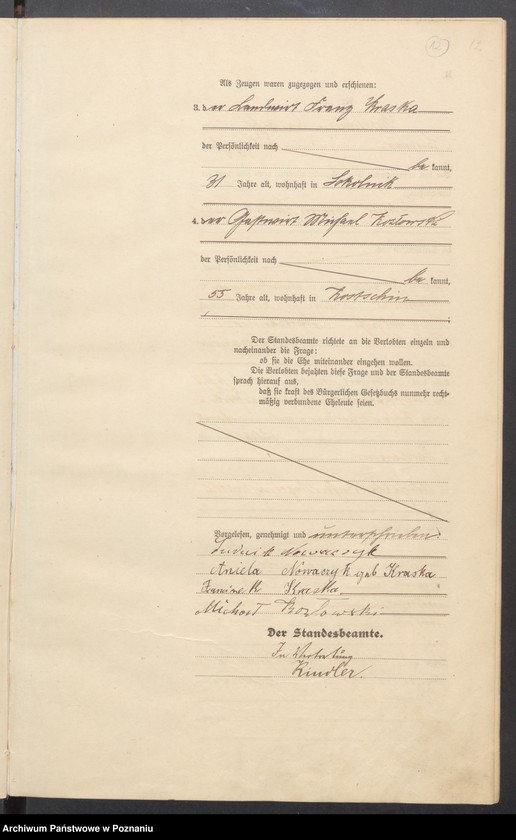 12
Als Zeugen waren zugezogen und erschienen:
3. der Landwirt Franz Kraska
der Persönlichkeit nach
bekannt,
31 Jahre alt, wohnhaft in Sokolnik
4. der Gastwirt Michael Kozlowski
der Persönlichkeit nach
bekannt,
55 Jahre alt, wohnhaft in Kostschin
Der Standesbeamte richtete an die Verlobten einzeln und
nacheinander die Frage:
ob sie die Ehe miteinander eingehen wollen.
Die Verlobten bejahten diese Frage und der Standesbeamte
sprach hierauf aus,
daß sie kraft des Bürgerlichen Gesetzbuchs nunmehr recht-
mäßig verbundene Eheleute seien.
Vorgelesen, genehmigt und unterschrieben:
Ludwik Nowaczyk
Aniela Nowaczyk geb Kraska
Franciszek Kraska
Michał Kozlowski
Der Standesbeamte.
In Vertretung
Kindler.
Archiwum Państwowe w Poznaniu